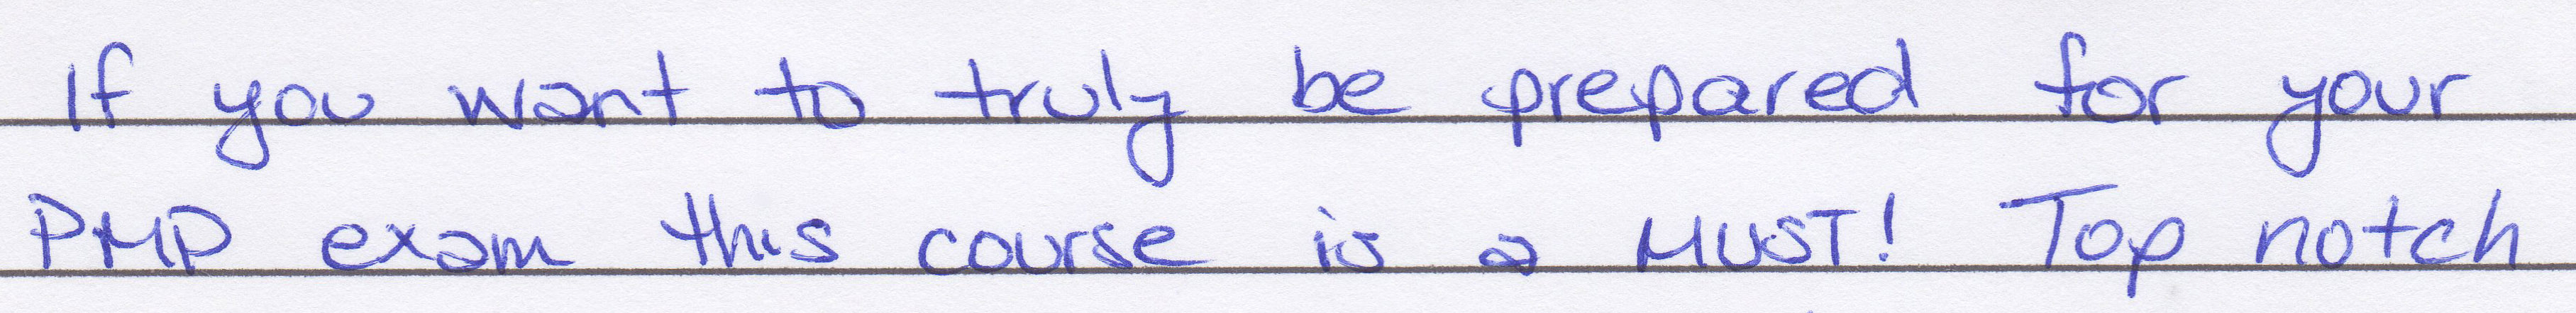 If you want to truly be prepared for your
PMP exam this course is a MUST! Top notch